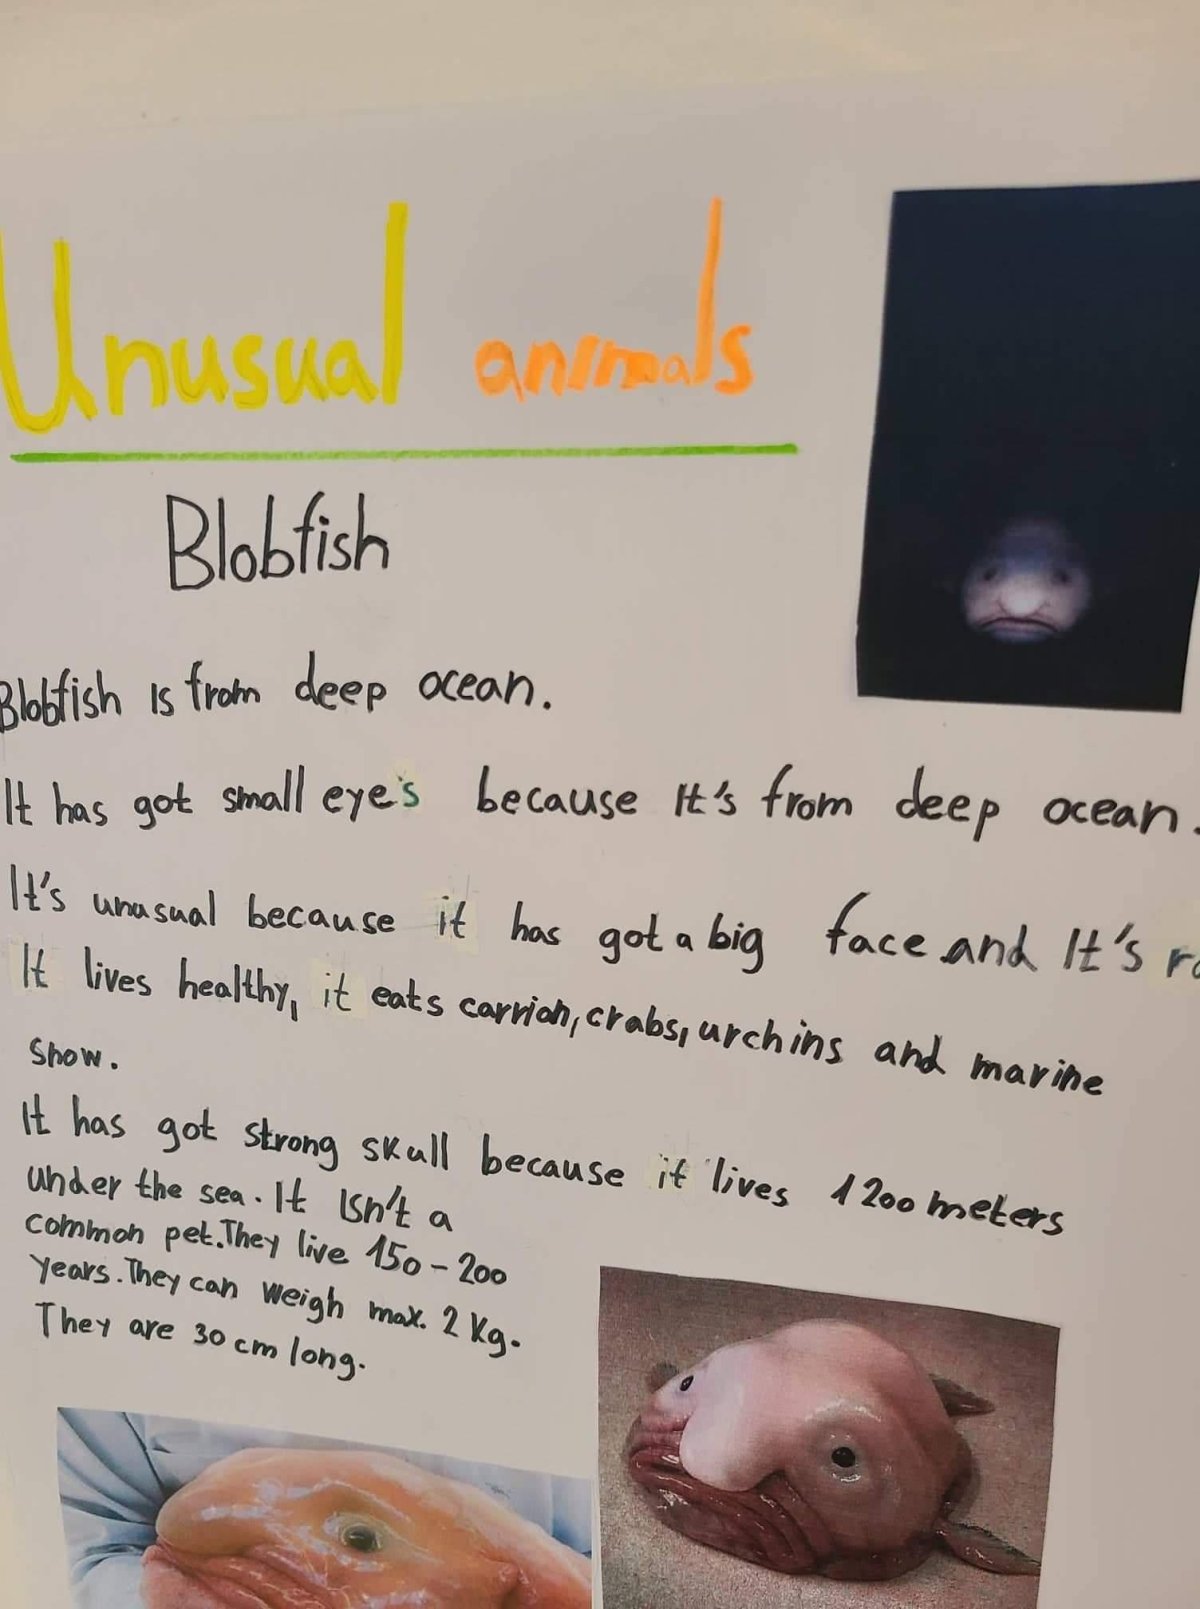 Unusual animals
Blobfish
Blobfish is from deep ocean.
It has got small eyes because It's from deep ocean.
It's unusual because it has got a big face and It's
It lives healthy, it eats carrion, crabs, urchins and marine
snow.
It has got strong skull because it lives 1200 meters
under the sea. It isn't a
common pet. They live 150-200
years. They can weigh max. 2 Kg.
They are 30 cm long.